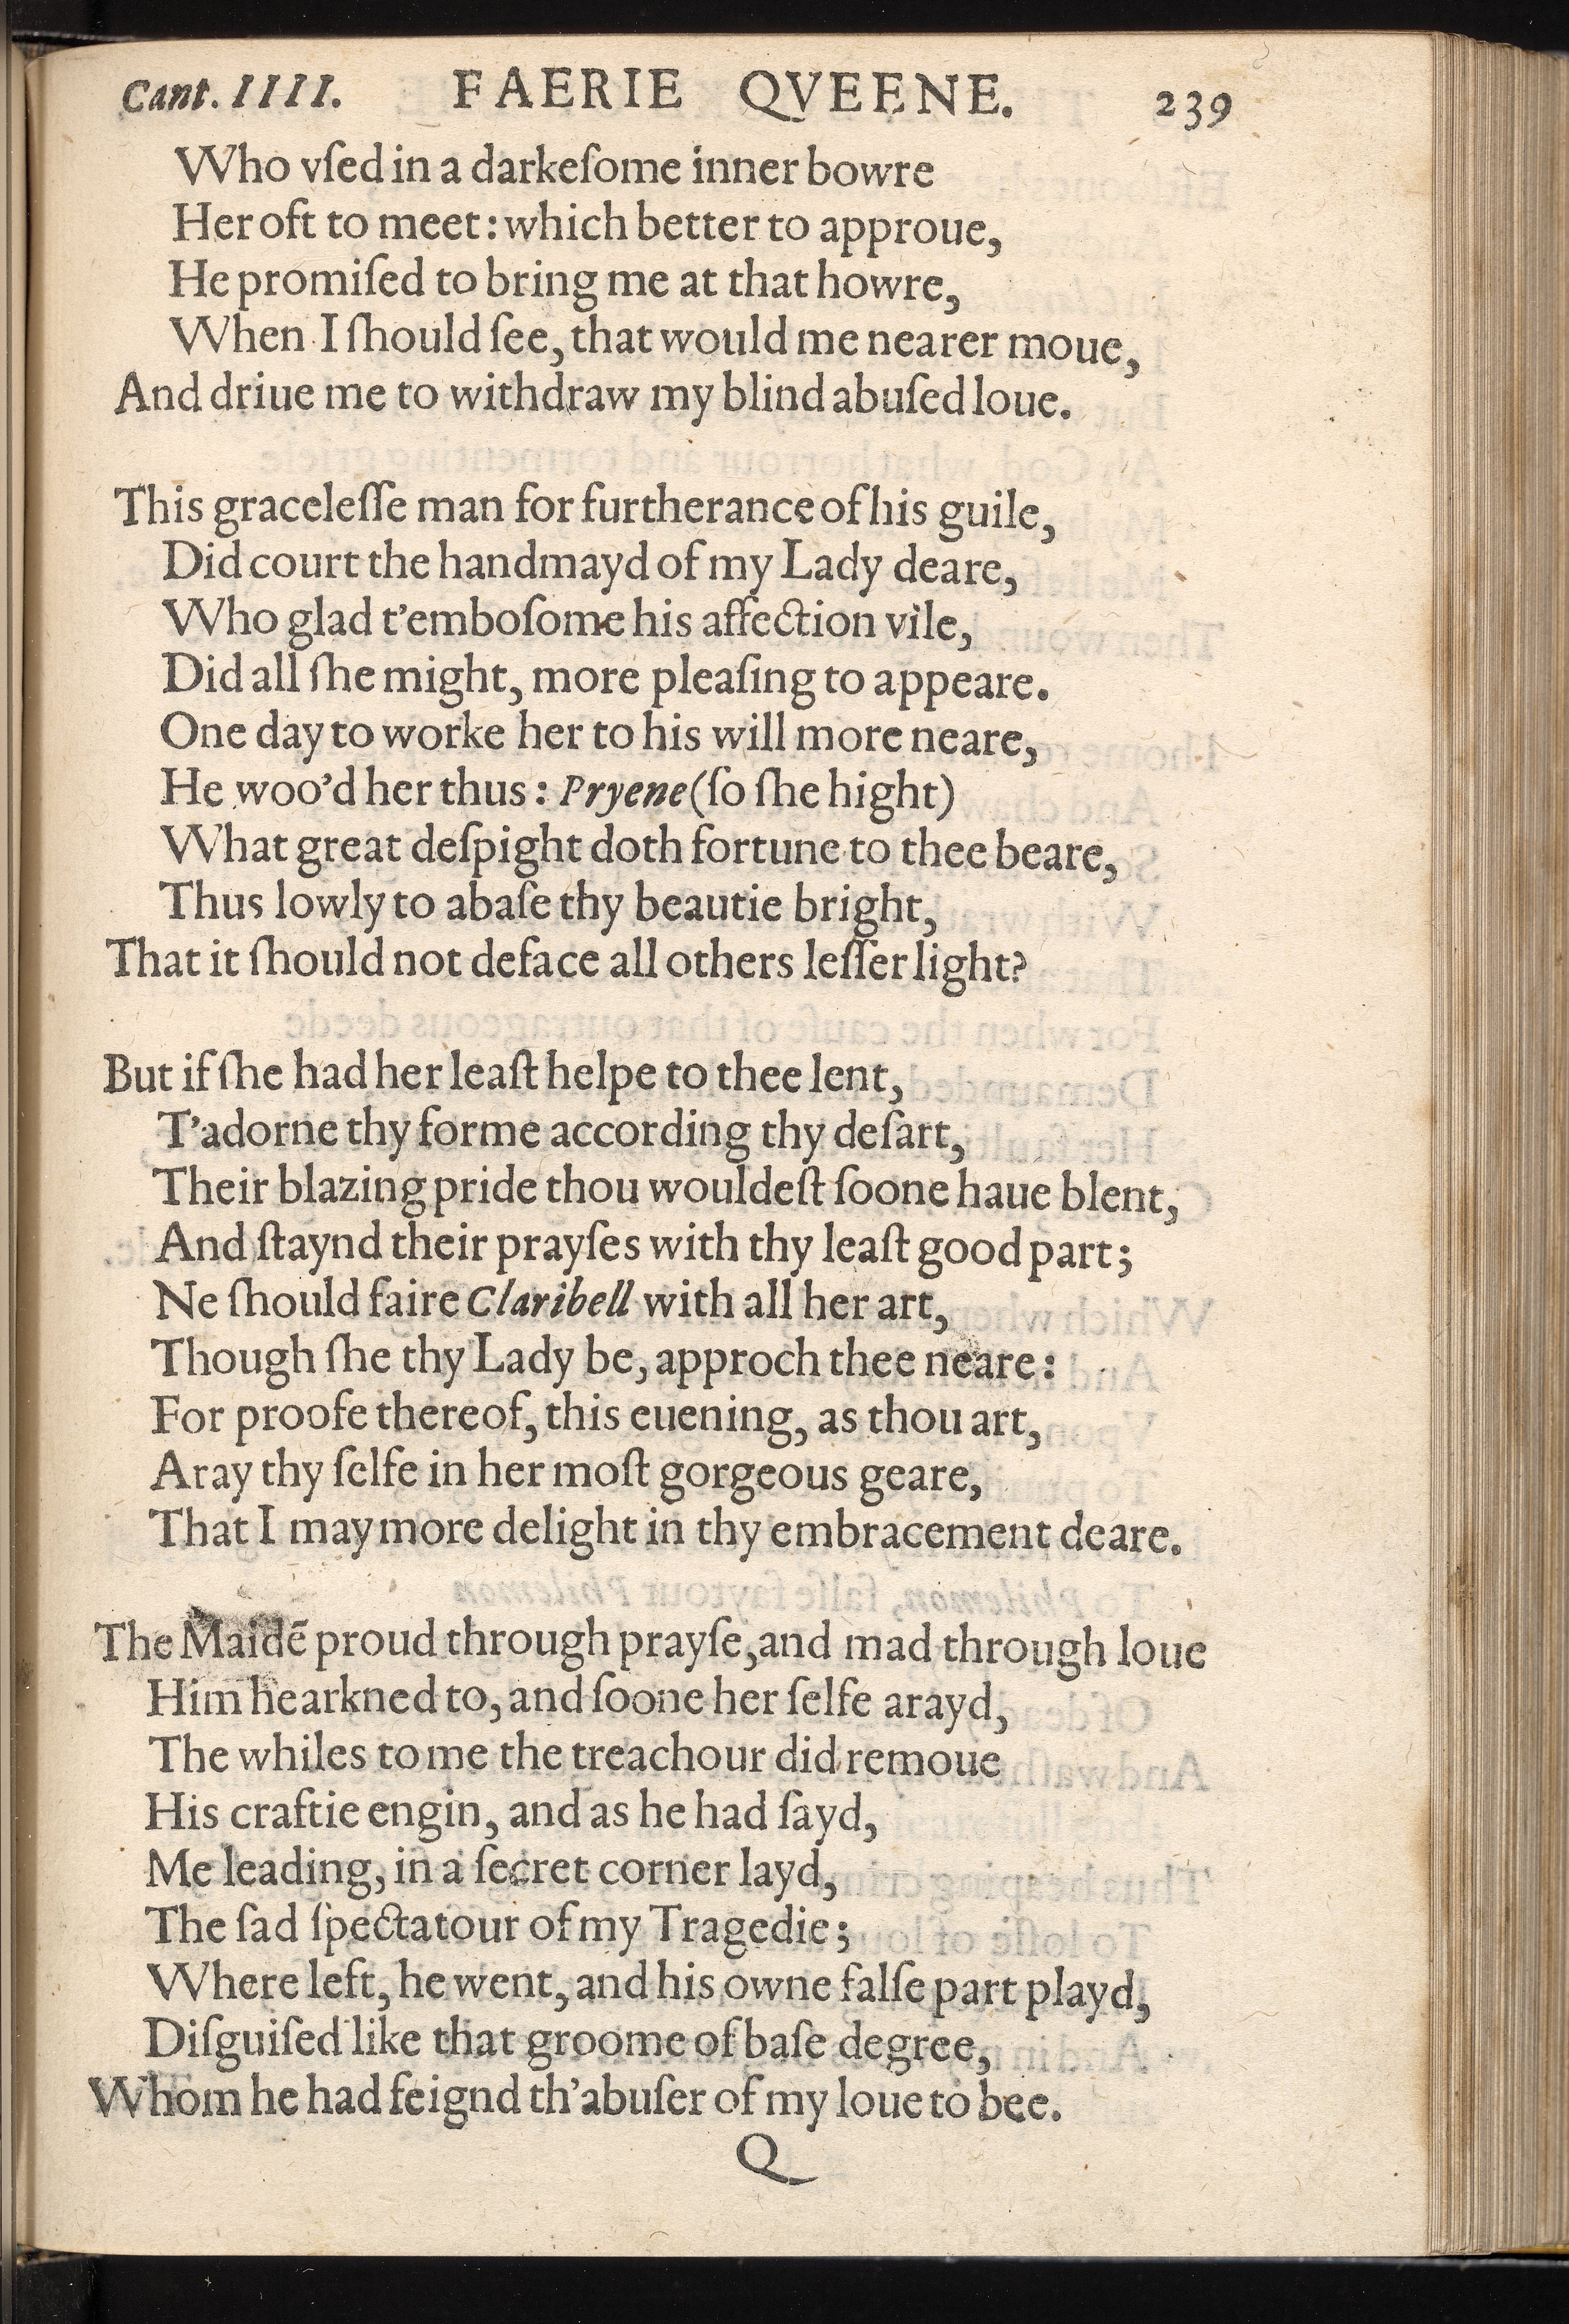 Cant. IIII. FAERIE QVEENE. 239
Who vſed in a darkeſome inner bowre
Her oft to meet: which better to approue,
He promiſed to bring me at that howre,
When I ſhould ſee, that would me nearer moue,
And driue me to withdraw my blind abuſed loue.
This graceleſſe man for furtherance of his guile,
Did court the handmayd of my Lady deare,
Who glad t'emboſome his affection vile,
Did all ſhe might, more pleaſing to appeare.
One day to worke her to his will more neare,
He woo'd her thus: Pryene (ſo ſhe hight)
What great deſpight doth fortune to thee beare,
Thus lowly to abaſe thy beautie bright,
That it ſhould not deface all others leſſer light?
But if ſhe had her leaſt helpe to thee lent,
T'adorne thy forme according thy deſart,
Their blazing pride thou wouldeſt ſoone haue blent,
And ſtaynd their prayſes with thy leaſt good part;
Ne ſhould faire Claribell with all her art,
Though ſhe thy Lady be, approch thee neare:
For proofe thereof, this euening, as thou art,
Aray thy ſelfe in her moſt gorgeous geare,
That I may more delight in thy embracement deare.
The Maidē proud through prayſe, and mad through loue
Him hearkned to, and ſoone her ſelfe arayd,
The whiles to me the treachour did remoue
His craftie engin, and as he had ſayd,
Me leading, in a ſecret corner layd,
The ſad ſpectatour of my Tragedie;
Where left, he went, and his owne falſe part playd,
Diſguiſed like that groome of baſe degree,
Whom he had feignd th'abuſer of my loue to bee.
Q